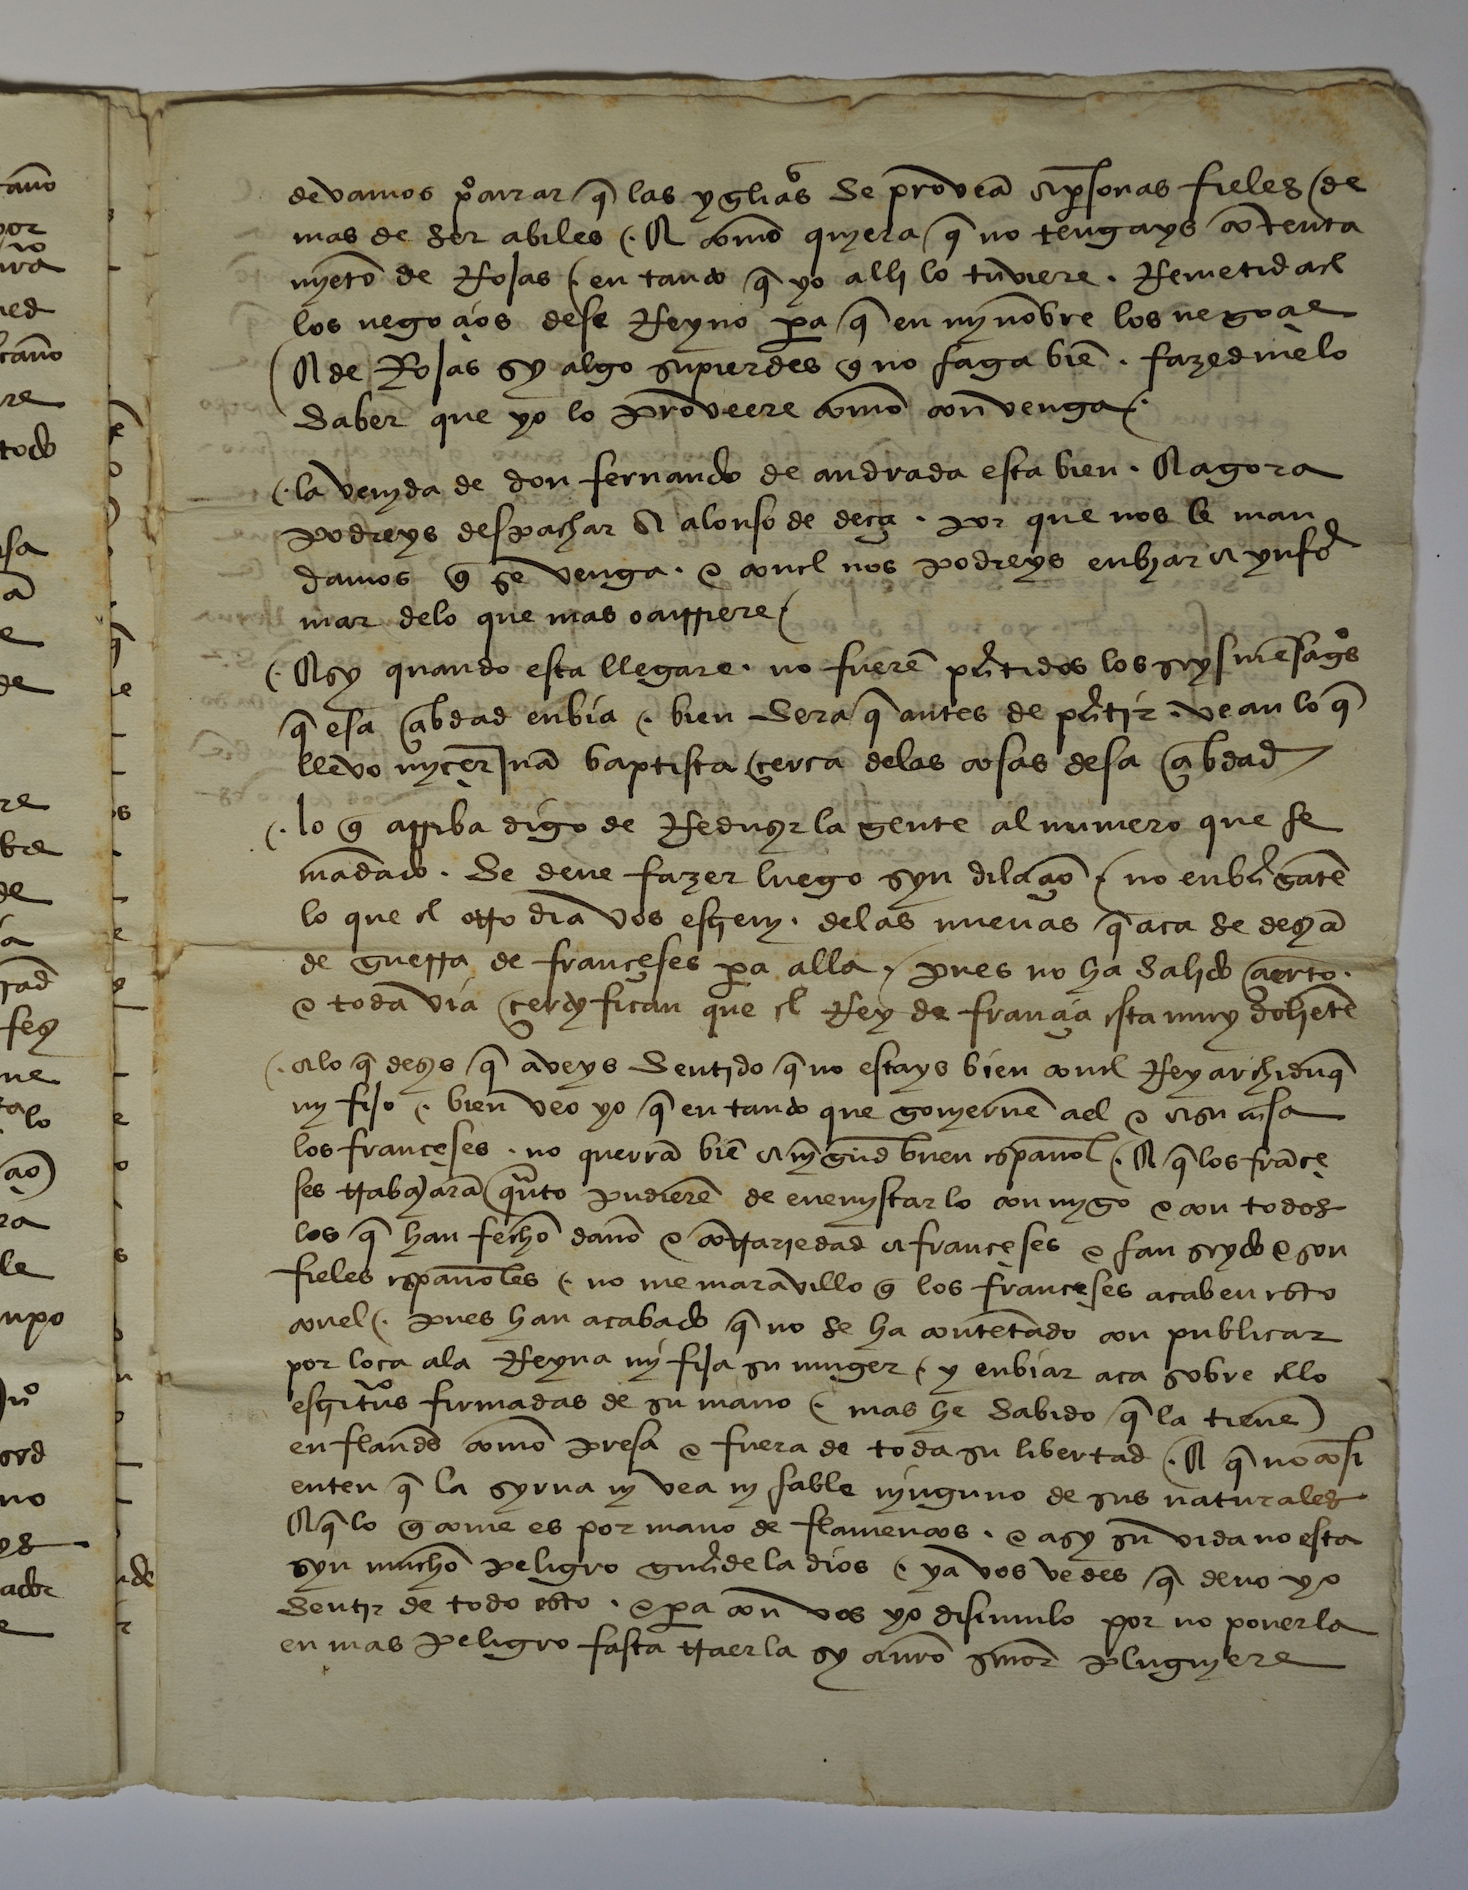 devamos p̱curar q̃ las ygliãs se provean a p̱sonas fieles de
mas de ser abiles . E como quiera q̃ no tengays contenta
myeto de Rojas en tanto q̃ yo alli lo tuviere . Remetid a el
los negocios dese Reyno pa q̃ en my nombre los negocie
E de Rojas sy algo supierdes q̃ no faga bien . fazedmelo
saber que yo lo proveere como convenga .
la venyda de don fernando de andrada esta bien . E agora
podreys despachar a alonso de deça . por que nos le man
damos q̃ se venga . e con el nos podreys enbyar a ynfor
mar delo que mas ocurriere
E sy quando esta llegare . no fueren ptidos los seys mensagos
q̃ esa cibdad enbia . bien sera q̃ antes de ptir . vean lo q̃
llevo mycer Juã baptista cerca delas cosas desa cibdad
lo q̃ arriba digo de Reduzir la gente al numero que se
mãdado . se deve fazer luego syn dilacion . no enbgãte
lo que el otro dia vos escrevi . delas nuevas q̃ aca se dezian
de guerra de françeses pa alla . pues no ha salido cierto .
e toda via certyfican que el Rey de francia esta muy doliẽte
a lo q̃ dezis q̃ aveys sentido q̃ no estays bien con el Rey archiduq̃
my fijo . bien veo yo q̃ en tanto que governẽ a el e a su casa
los françeses . no querrã biẽ a nĩgũd buen español . E q̃ los frãçe
ses trabajarã quãto pudierẽ de enemystarlo con mygo e con todos
los q̃ han fecho daño e contrariedad a françeses e han seydo e son
fieles españoles . no me maravillo q̃ los françeses acaben esto
con el . pues han acabado q̃ no se ha contẽtado con publicar
por loca ala Reyna mi fija su muger . y enbiar aca sobre ello
escrituras firmadas de su mano . mas he sabido q̃ la tiene
en flandes como presa e fuera de toda su libertad . E q̃ no cõsi
enten q̃ la syrva ny vea ny fable nynguno de sus naturales
E q̃ lo q̃ come es por mano de flamencos . e asy su vida no esta
syn mucho peligro guardela dios . ya vos vedes q̃ devo yo
sentir de todo esto . e pa con vos yo disimulo por no ponerla
en mas peligro fasta traerla sy a nr̃o señor pluguyere